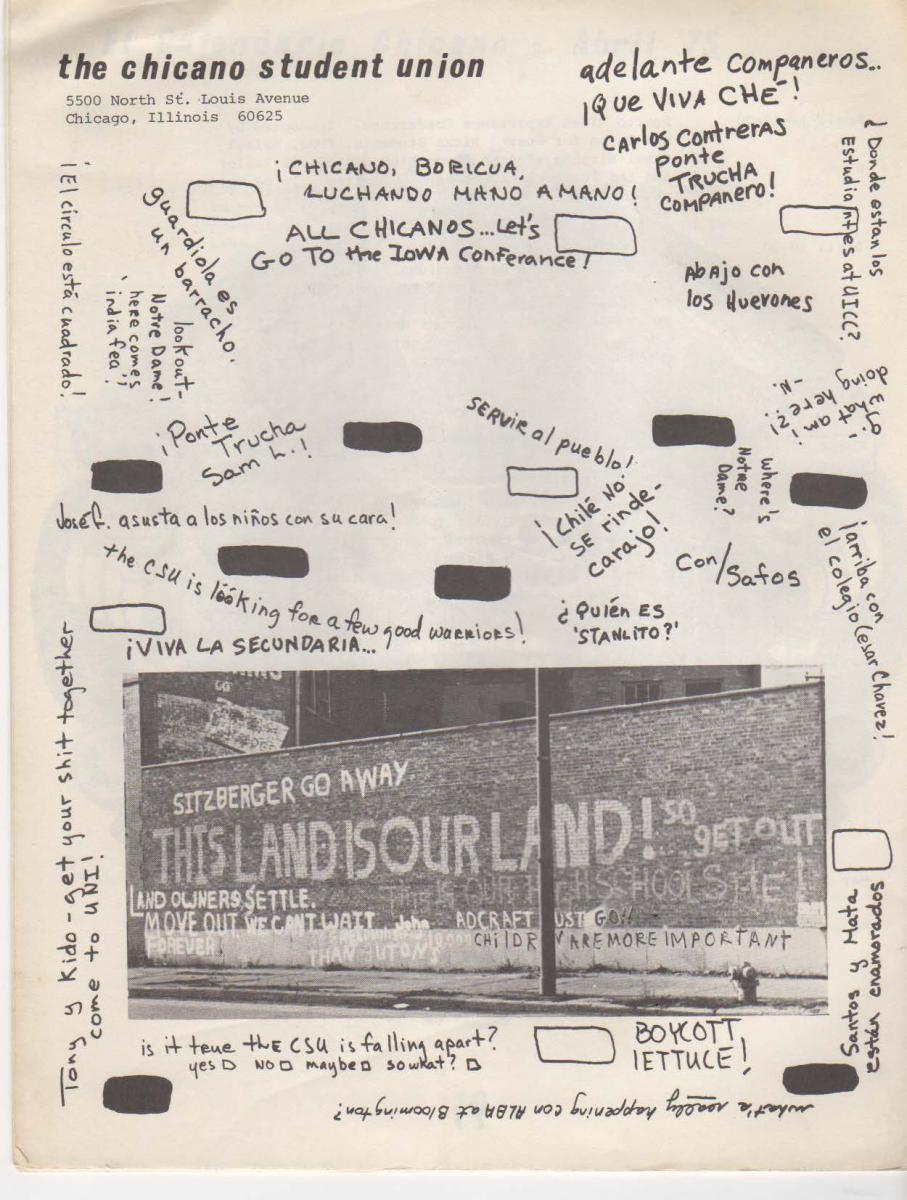 the chicano student union
5500 North St. Louis Avenue
Chicago, Illinois 60625
adelante compañeros..
¡QUE VIVA CHE!
CARLOS CONTRERAS
PONTE
TRUCHA
COMPANERO!
¿Donde estan los
Estudiantes at UICC?
¡CHICANO, BORICUA,
LUCHANDO MANO A MANO!
ALL CHICANOS...Let's
GO TO the IOWA Conferance!
Abajo con
los Huevones
¡El circulo está cuadrado!
guardiola es
un barracho.
lookout-
Notre Dame!
here comes
'india fea'
¡Ponte
Trucha
Sam L.!
SERVIR al pueblo!
what am i
doing here?!
-N.
where's
Notre
Dame?
José G. asusta a los niños con su cara!
¡Chilé NO
SE rinde-
carajo!
Con/Safos
¡arriba con
el colegio Cesar Chavez!
the CSU is looking for a few good warriors!
¿QUIÉN ES
'STANLITO?'
¡VIVA LA SECUNDARIA...
Tony y Kido-get your shit together
come to UNI!
SITZBERGER GO AWAY.
THIS LAND IS OUR LAND! SO GET OUT
THIS IS OUR HIGH SCHOOL SITE!
LAND OWNERS SETTLE.
MOVE OUT WE CANT WAIT
FOREVER!
John
ADCRAFT UST GO!!
CHILDR N ARE MORE IMPORTANT
THAN
Santos y Mata
están enamorados
is it true the CSU is falling apart?
yes □ NO □ maybe □ so what? □
BOYCOTT
LETTUCE!
what's really happening con ALBA at Bloomington?